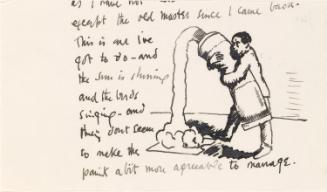 as I have not
except the old master since I came back.
This is all I've
got to do - and
the sun is shining
and the birds
singing - and
they don't seem
to make the
paint a bit more agreeable to manage.